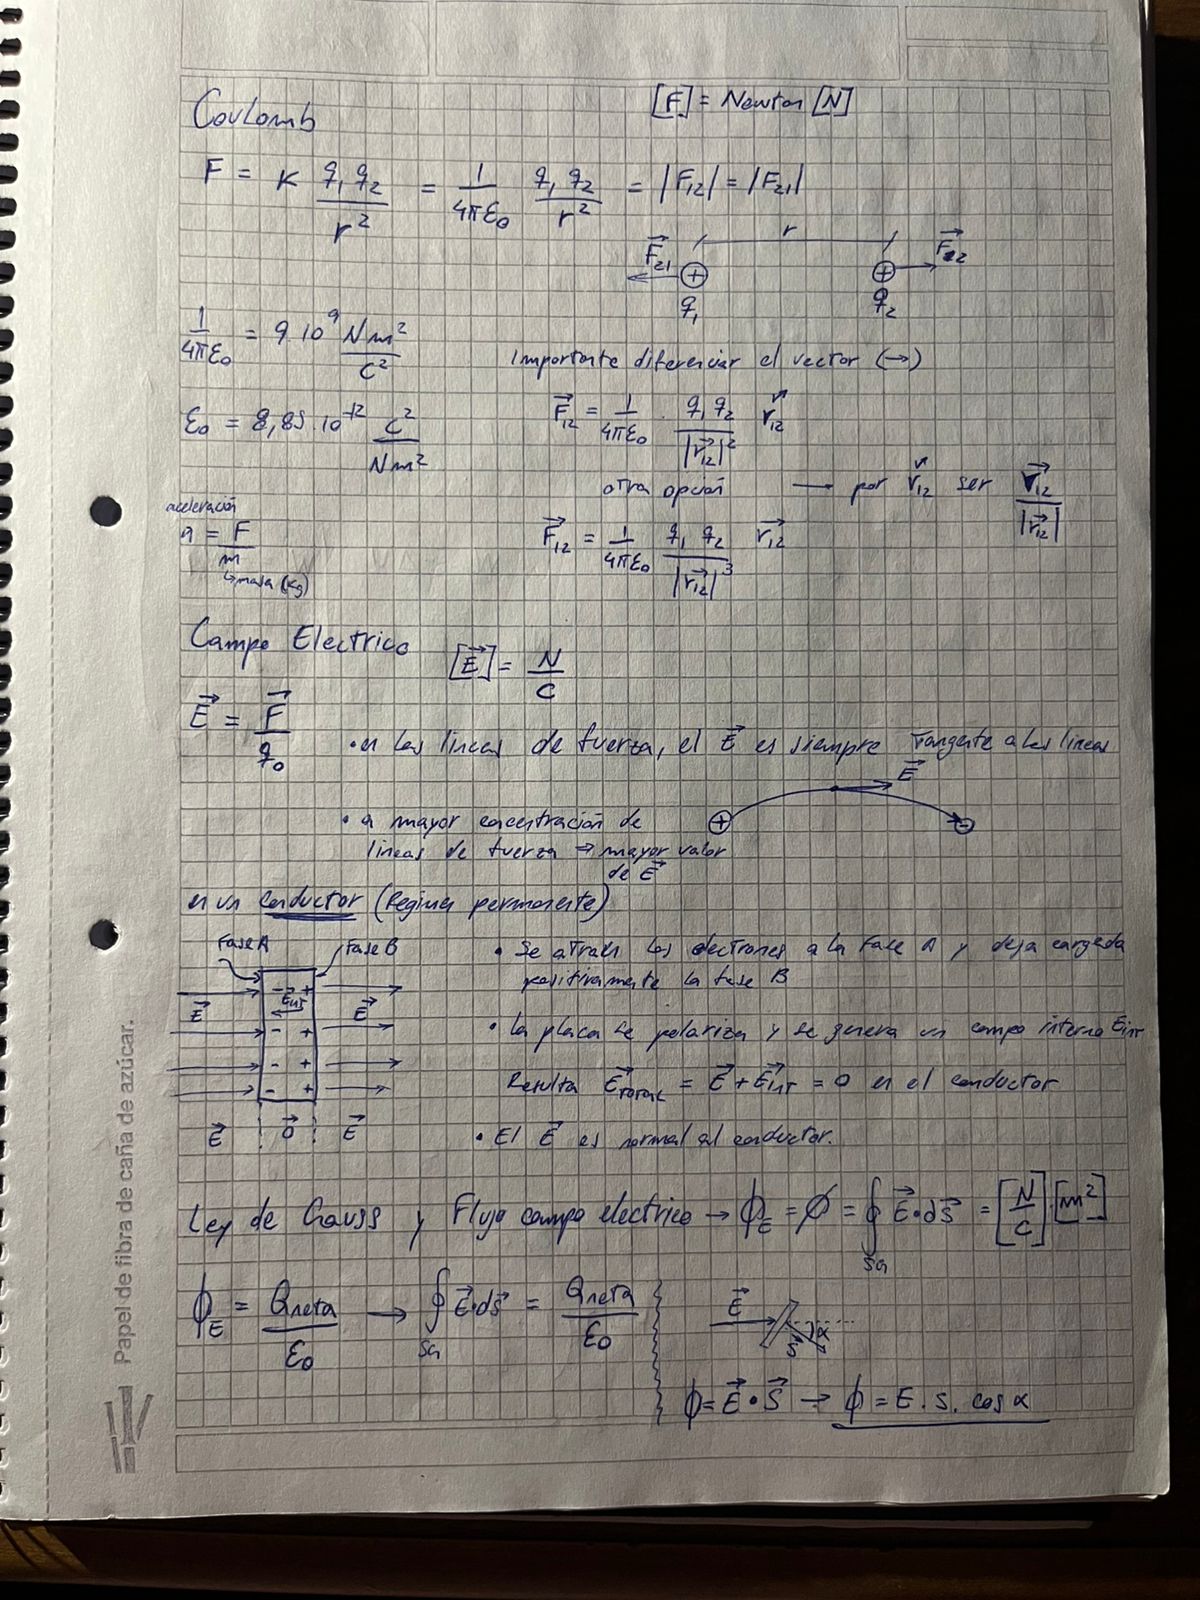 Coulomb
[F] = Newton [N]
F = K q₁ q₂ / r² = 1 / 4πε₀ q₁ q₂ / r² = |F₁₂| = |F₂₁|
r
F⃗₂₁ + + F⃗₁₂
q₁ q₂
1 / 4πε₀ = 9·10⁹ N m² / C²
Importante diferenciar el vector (→)
ε₀ = 8,85·10⁻¹² C² / N m²
F⃗₁₂ = 1 / 4πε₀ · q₁ q₂ / |r⃗₁₂|² r̂₁₂
otra opción → por r̂₁₂ ser r⃗₁₂ / |r⃗₁₂|
aceleración
a = F / m
↳ masa (kg)
F⃗₁₂ = 1 / 4πε₀ q₁ q₂ / |r⃗₁₂|³ r⃗₁₂
Campo Electrico
[E⃗] = N / C
E⃗ = F⃗ / q₀
• en las lineas de fuerza, el E⃗ es siempre Tangente a las lineas
E⃗
+ -
• a mayor concentración de
lineas de fuerza → mayor valor
de E⃗
en un conductor (Regimen permanente)
Fase A Fase B
E⃗ - + E⃗
E⃗int
- +
- +
- +
E⃗ 0⃗ E⃗
• Se atraen los electrones a la Fase A y deja cargada
positivamente la fase B
• la placa se polariza y se genera un campo interno Eint
Resulta E⃗TOTAL = E⃗ + E⃗INT = 0 en el conductor
• El E⃗ es normal al conductor.
Ley de Gauss y Flujo campo electrico → ϕE = ϕ = ∮SG E⃗ • dS⃗ = [N / C] · [m²]
ϕE = Qneta / ε₀ → ∮SG E⃗ • dS⃗ = Qneta / ε₀
E⃗
S α
ϕ = E⃗ • S⃗ → ϕ = E . S . cos α
Papel de fibra de caña de azúcar.